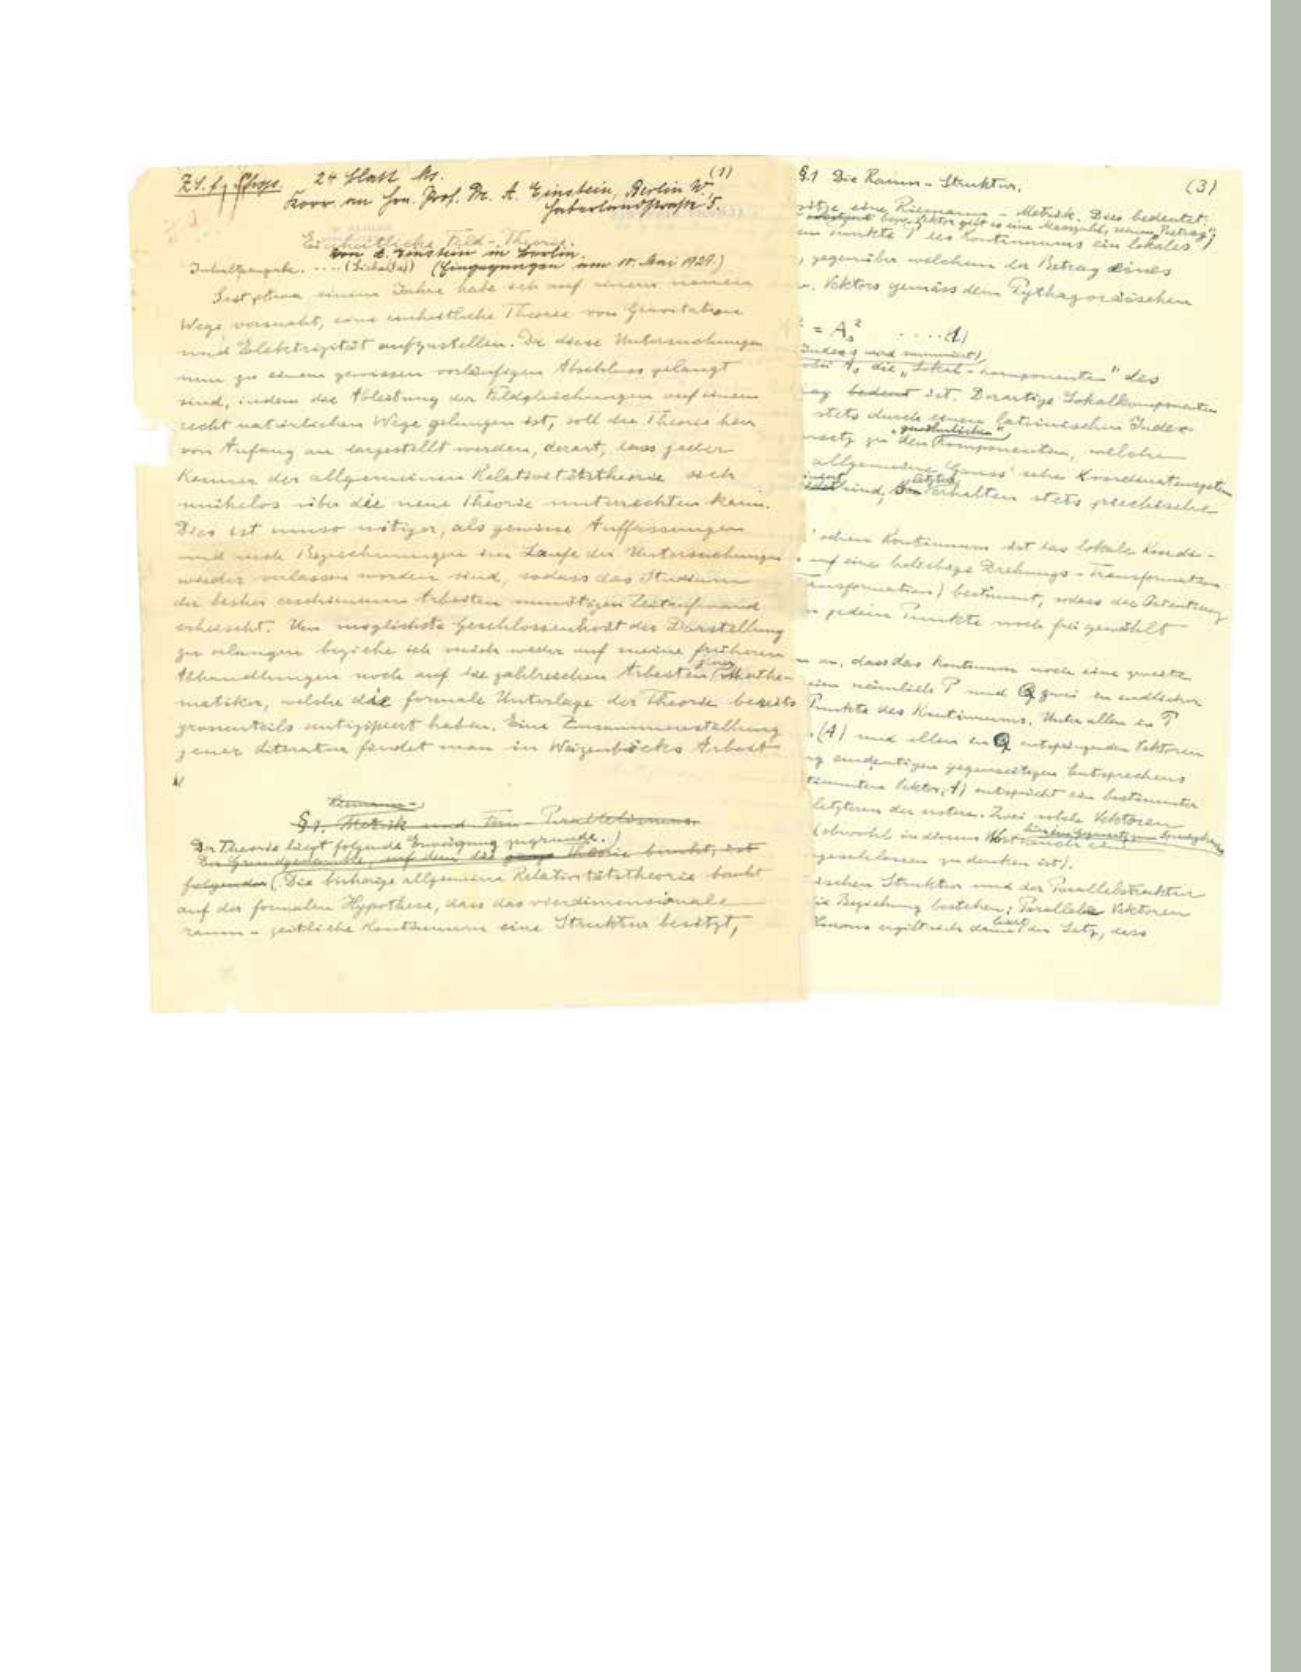 Zs. f. Phys. 24 Blatt Ms. (1)
Korr. an Hrn. Prof. Dr. A. Einstein, Berlin W.,
Haberlandstraße 5.
Einheitliche Feld-Theorie.
Von A. Einstein in Berlin.
Inhaltsangabe. .... (Eingegangen am 10. Mai 1929)
Seit etwa einem Jahre habe ich auf einem neuen
Wege versucht, eine einheitliche Theorie von Gravitation
und Elektrizität aufzustellen. Da diese Untersuchungen
nun zu einem gewissen vorläufigen Abschluss gelangt
sind, indem die Ableitung der Feldgleichungen auf einem
recht natürlichen Wege gelungen ist, soll die Theorie hier
von Anfang an dargestellt werden, derart, dass jeder
Kenner der allgemeinen Relativitätstheorie sich
mühelos über die neue Theorie unterrichten kann.
Dies ist umso nötiger, als gewisse Auffassungen
und auch Bezeichnungen im Laufe der Untersuchungen
wieder verlassen worden sind, sodass das Studium
der bisher erschienenen Arbeiten unnötigen Zeitaufwand
erheischt. Um möglichste Geschlossenheit der Darstellung
zu erlangen beziehe ich mich weder auf meine früheren
Abhandlungen noch auf die zahlreichen Arbeiten der Mathe-
matiker, welche die formale Unterlage der Theorie bereits
grossenteils antizipiert haben. Eine Zusammenstellung
jener Literatur findet man in Weizenböcks Arbeit
Riemann-
§1. Metrik und Fern-Parallelismus.
Der Theorie liegt folgende Erwägung zugrunde.
Der Grundgedanke, auf dem die ganze Theorie beruht, ist
folgender (Die bisherige allgemeine Relativitätstheorie baut
auf der formalen Hypothese, dass das vierdimensionale
raum-zeitliche Kontinuum eine Struktur besitzt,
§.1 Die Raum-Struktur. (3)
eine Riemann-Metrik. Dies bedeutet:
Vektor gibt es eine Masszahl, seinen "Betrag";
Punkte P des Kontinuums ein lokales
gegenüber welchem der Betrag eines
Vektors gemäss dem Pythagoräischen
= A_s² ....(1)
Index s wird summiert)
A_s die "Lokal-Komponenten" des
bedeut ist. Derartige Lokalkomponenten
stets durch einen lateinischen Index
"gewöhnlichen"
zu den Komponenten, welche
allgemeine Gauss'sche Koordinatensystem
letztere
sind, erhalten stets griechische
Kontinuum ist das lokale Koordi-
auf eine beliebige Drehungs-Transformation
Transformation) bestimmt, sodass die Orientierung
jedem Punkte noch frei gewählt
an, dass das Kontinuum noch eine zweite
nämlich P und Q zwei in endlicher
Punkte des Kontinuums. Unter allen in P
(A) und allen in Q entspringenden Vektoren
eindeutigen gegenseitigen Entsprechens
bestimmten Vektor (A) entspricht ein bestimmter
letzteren der erstere. Zwei solche Vektoren
(obwohl in dessen
geschlossen zu denken ist).
Struktur und der Parallelstruktur
Beziehung bestehen: Parallele Vektoren
Hieraus ergibt sich dann der Satz, dass